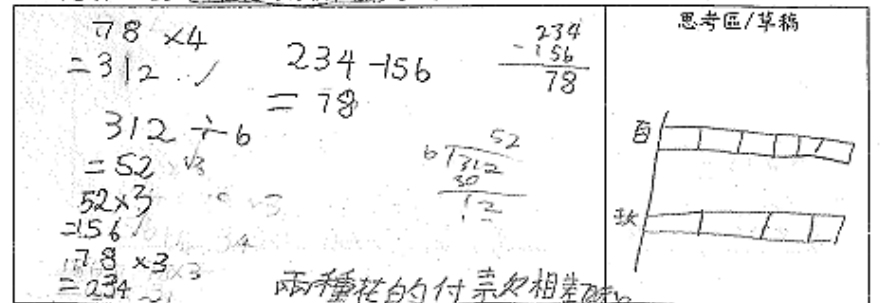 78 ×4
= 312
312 ÷ 6
= 52
52×3
=156
78 ×3
= 234
234 -156
= 78
234
- 156
78
52
6 312
30
12
兩種花的付款相差
思考區/草稿
百
玫